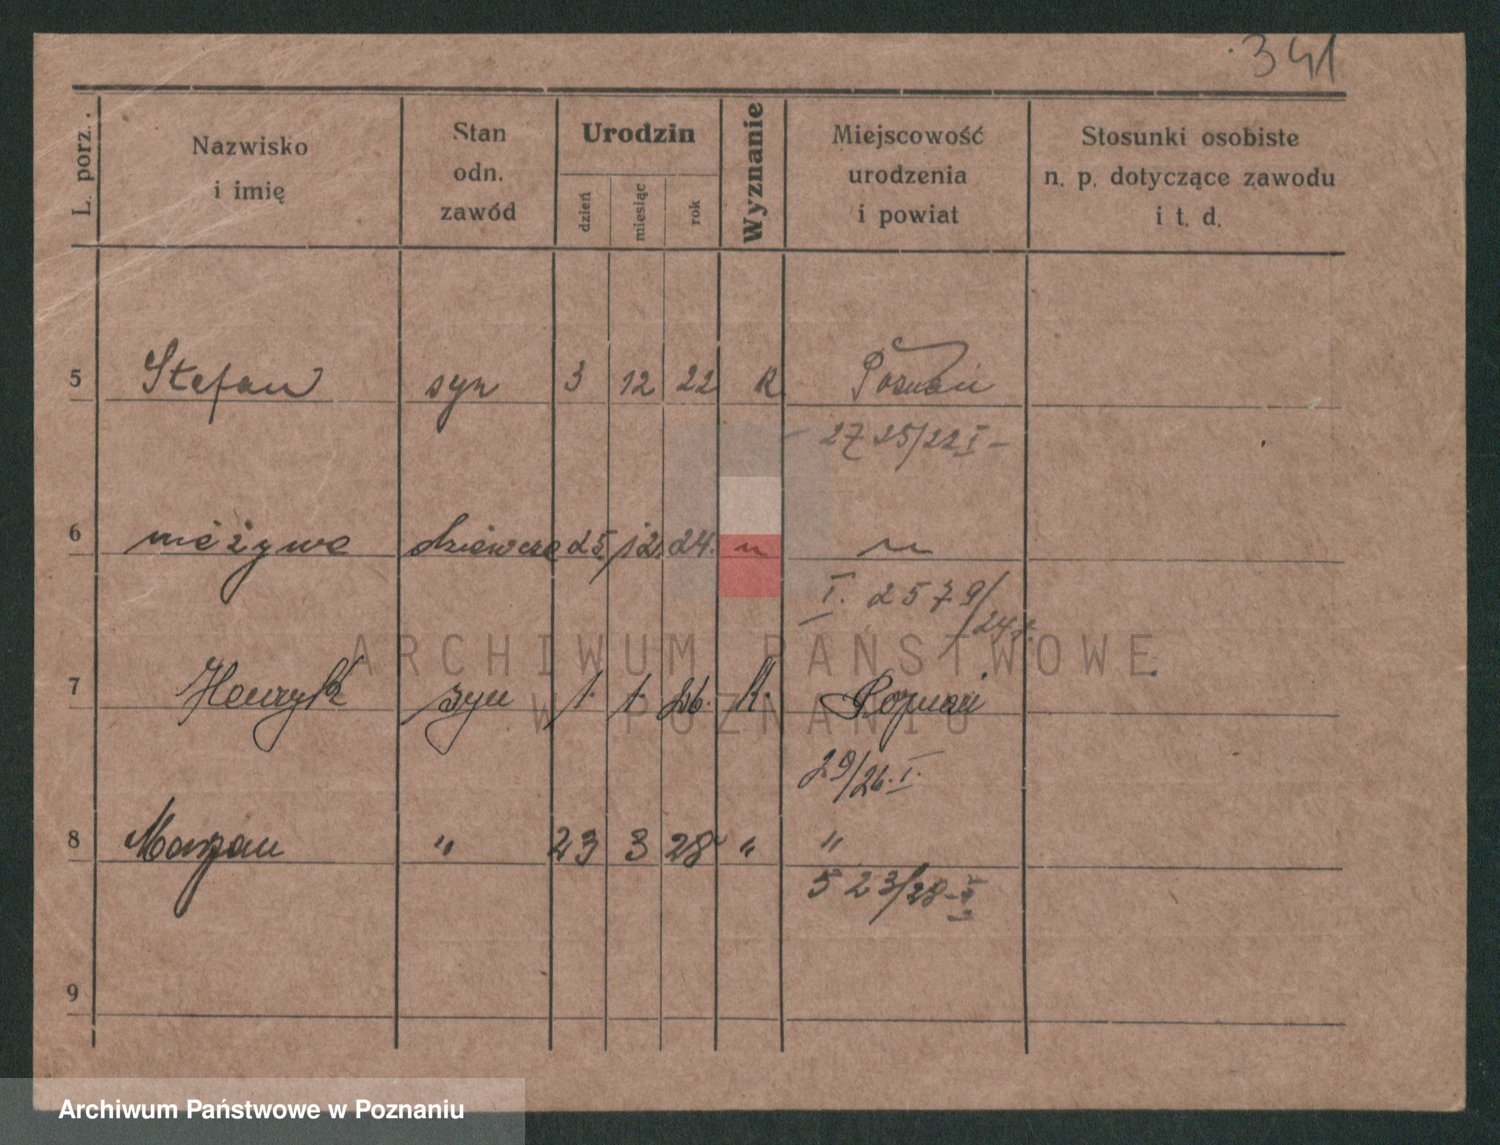 341
L. porz. Nazwisko i imię Stan odn. zawód Urodzin dzień miesiąc rok Wyznanie Miejscowość urodzenia i powiat Stosunki osobiste n. p. dotyczące zawodu i t. d.
5 Stefan syn 3 12 22 K Poznań
2725/22 I –
6 nieżywe dziewczę 25 12. 24. " "
I. 2579/24
ARCHIWUM PAŃSTWOWE
7 Henryk syn 1. 1. 26. K. Poznań
W POZNANIU
29/26. I.
8 Marjan " 23 3 28 " "
523/28
9
Archiwum Państwowe w Poznaniu